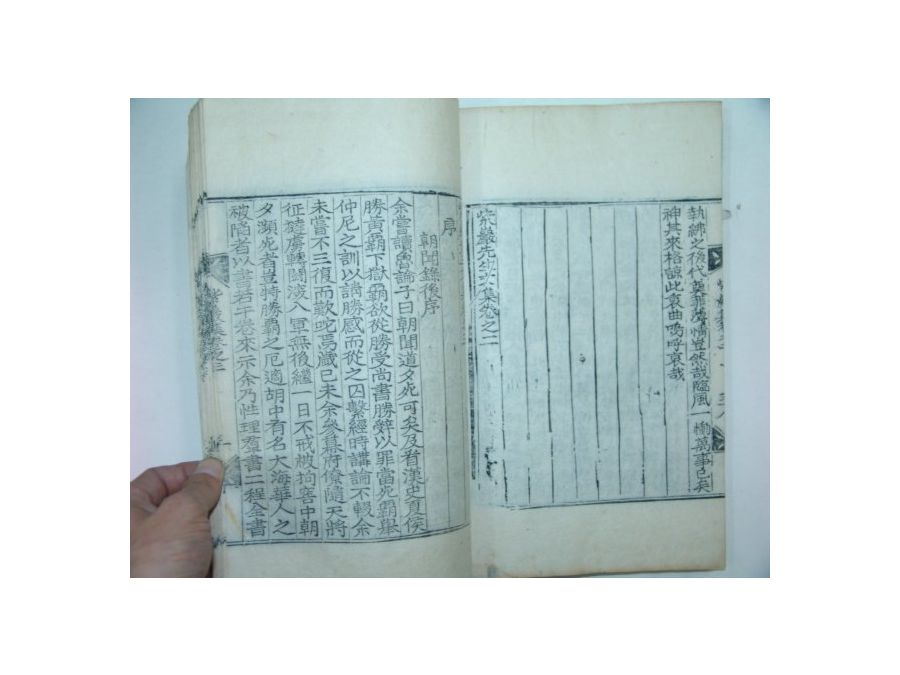 執紼之後代奠菲薄情豈然哉臨風一慟萬事已矣
神其來格諒此哀曲嗚呼哀哉
紫巖先生文集卷之二
序
朝聞錄後序
余嘗讀魯論子曰朝聞道夕死可矣及看漢史夏侯
勝黃霸下獄霸欲從勝受尚書勝辭以罪當死霸擧
仲尼之訓以請勝感而從之囚繫經時講論不輟余
未嘗不三復而歎咜焉歲己未余參幕府僚隨天將
征建虜轉鬪深入軍無後繼一日不戒被拘窖中朝
夕瀕死者豈特勝霸之厄適胡中有名大海華人之
被陷者以書若干卷來示余乃性理羣書二程全書